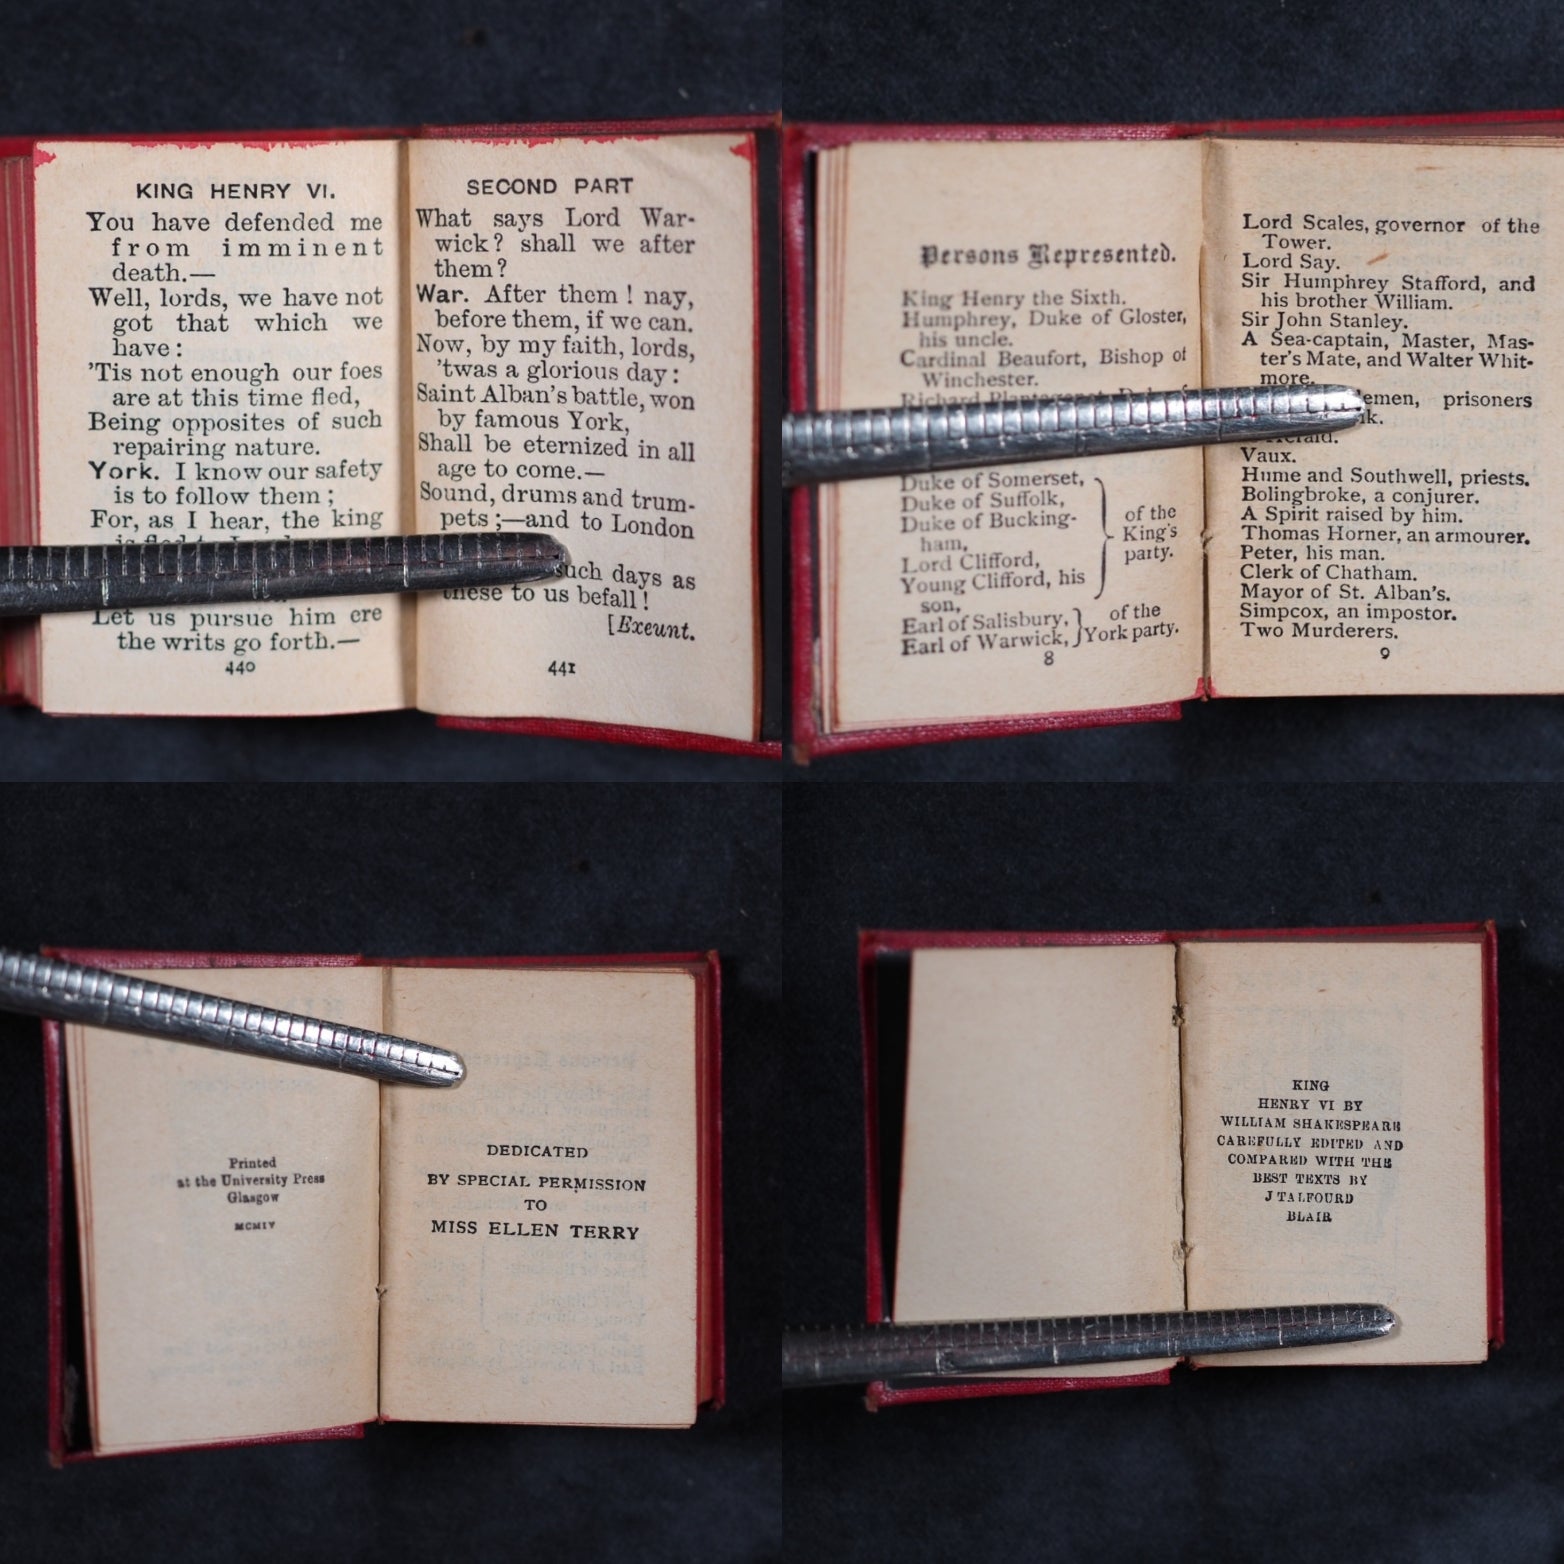 KING HENRY VI.
You have defended me
from imminent
death.—
Well, lords, we have not
got that which we
have:
'Tis not enough our foes
are at this time fled,
Being opposites of such
repairing nature.
York. I know our safety
is to follow them;
For, as I hear, the king
is fled to
Let us pursue him ere
the writs go forth.—
440
SECOND PART
What says Lord War-
wick? shall we after
them?
War. After them! nay,
before them, if we can.
Now, by my faith, lords,
'twas a glorious day:
Saint Alban's battle, won
by famous York,
Shall be eternized in all
age to come.—
Sound, drums and trum-
pets;—and to London
such days as
these to us befall!
[Exeunt.
441
Persons Represented.
King Henry the Sixth.
Humphrey, Duke of Gloster,
his uncle.
Cardinal Beaufort, Bishop of
Winchester.
Richard Plantagenet, Duke of
Duke of Somerset,
Duke of Suffolk,
Duke of Bucking-
ham,
Lord Clifford,
Young Clifford, his
son,
of the
King's
party.
Earl of Salisbury,
Earl of Warwick,
of the
York party.
8
Lord Scales, governor of the
Tower.
Lord Say.
Sir Humphrey Stafford, and
his brother William.
Sir John Stanley.
A Sea-captain, Master, Mas-
ter's Mate, and Walter Whit-
more.
prisoners
Herald.
Vaux.
Hume and Southwell, priests.
Bolingbroke, a conjurer.
A Spirit raised by him.
Thomas Horner, an armourer.
Peter, his man.
Clerk of Chatham.
Mayor of St. Alban's.
Simpcox, an impostor.
Two Murderers.
9
Printed
at the University Press
Glasgow
MCMIV
DEDICATED
BY SPECIAL PERMISSION
TO
MISS ELLEN TERRY
KING
HENRY VI BY
WILLIAM SHAKESPEARE
CAREFULLY EDITED AND
COMPARED WITH THE
BEST TEXTS BY
J TALFOURD
BLAIR